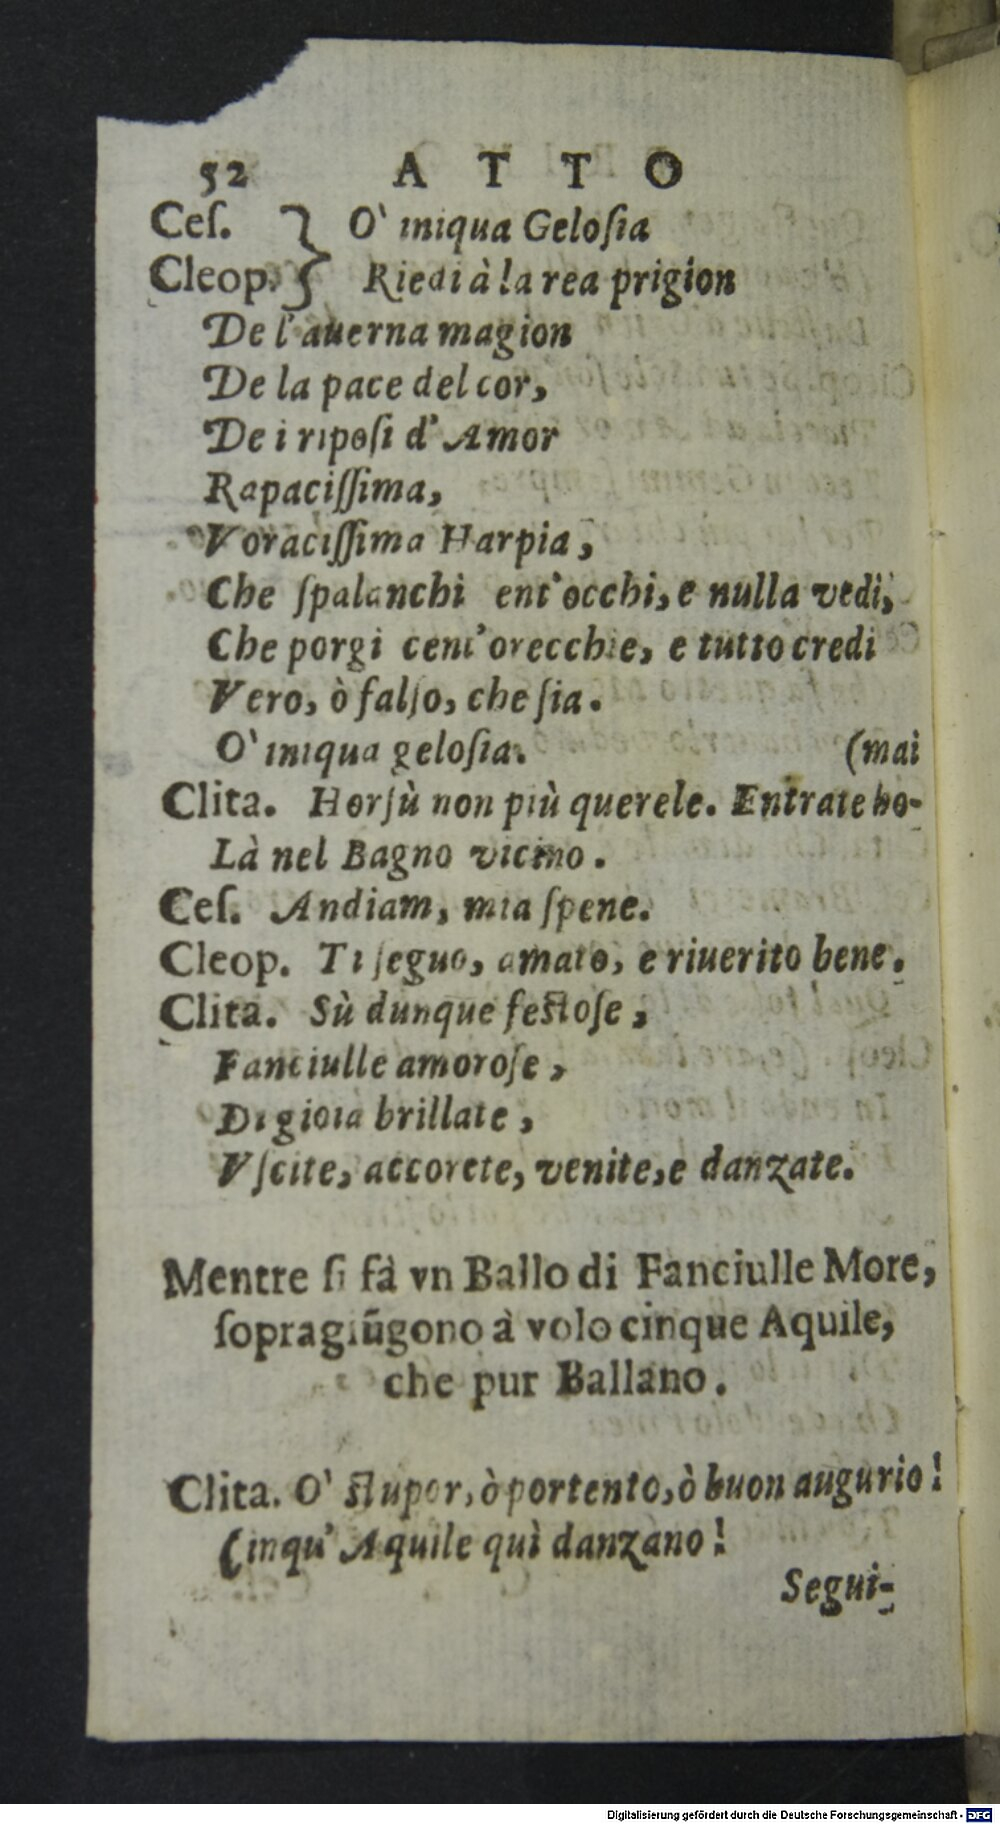 52 ATTO
Ceſ. } O' iniqua Geloſia
Cleop. } Riedi à la rea prigion
De l'auerna magion
De la pace del cor,
De i ripoſi d'Amor
Rapaciſſima,
Voraciſſima Harpia,
Che ſpalanchi ent'occhi, e nulla vedi,
Che porgi cent'orecchie, e tutto credi
Vero, ò falſo, che ſia.
O' iniqua geloſia. (mai
Clita. Horſù non più querele. Entrate ho-
Là nel Bagno vicino.
Ceſ. Andiam, mia ſpene.
Cleop. Ti ſeguo, amato, e riuerito bene.
Clita. Sù dunque feſtoſe,
Fanciulle amoroſe,
Di gioia brillate,
Vſcite, accorete, venite, e danzate.
Mentre ſi fà vn Ballo di Fanciulle More,
ſopragiũgono à volo cinque Aquile,
che pur Ballano.
Clita. O' ſtupor, ò portento, ò buon augurio!
Cinqu' Aquile quì danzano!
Segui-
Digitalisierung gefördert durch die Deutsche Forschungsgemeinschaft - DFG